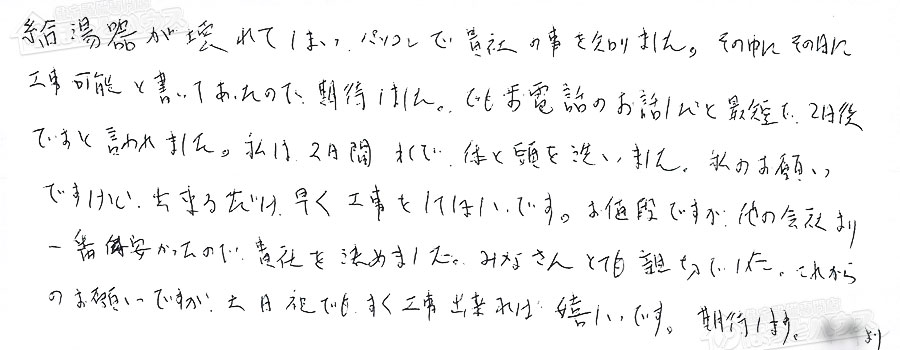 給湯器が壊れてしまい パソコンで貴社の事を知りました。その中にその日に
工事可能と書いてあったので、期待しました。でもお電話のお話しだと最短で、2日後
ですと言われました。私は、2日間 水で、体と頭を洗いました。私のお願い
ですけど、出来るだけ、早く工事をしてほしいです。お値段ですが、他の会社より
一番安かったので、貴社を決めました。みなさんとても親切でした。これから
のお願いですが、土日祝でも、すぐ工事出来れば 嬉しいです。期待します。
より